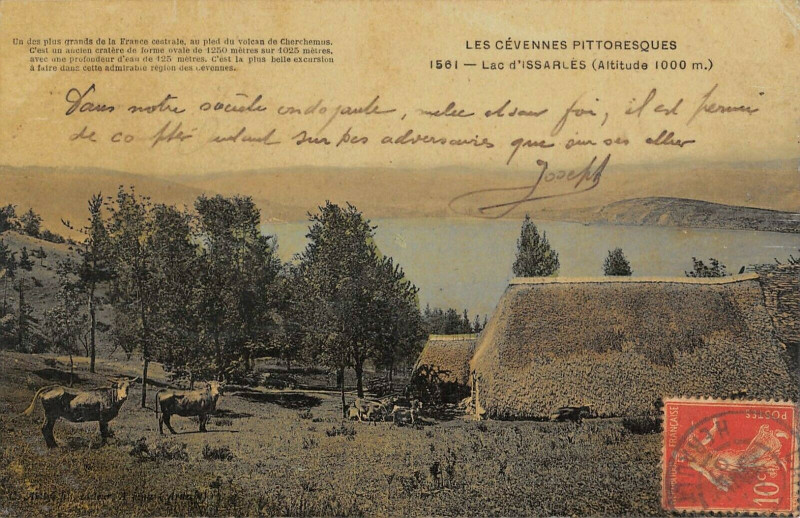 Un des plus grands de la France centrale, au pied du volcan de Cherchemus.
C'est un ancien cratère de forme ovale de 1250 mètres sur 1025 mètres,
avec une profondeur d'eau de 125 mètres. C'est la plus belle excursion
à faire dans cette admirable région des Cévennes.
LES CÉVENNES PITTORESQUES
1561 — Lac d'ISSARLÈS (Altitude 1000 m.)
Dans notre société ondoyante, mêlée et sans foi, il est permis
de compter autant sur ses adversaires que sur ses
Joseph
POSTES
10